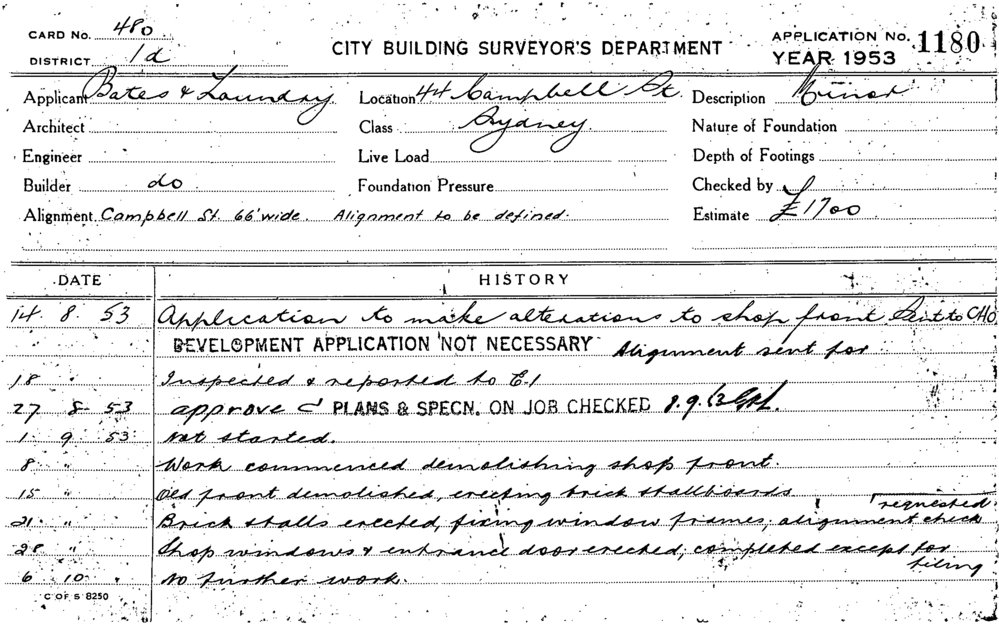 CARD No. 480
DISTRICT 1d
CITY BUILDING SURVEYOR'S DEPARTMENT
APPLICATION No. 1180
YEAR 1953
Applicant Bates & Laundry Location 44 Campbell St. Description Minor
Architect Class Sydney. Nature of Foundation
Engineer Live Load Depth of Footings
Builder do Foundation Pressure Checked by
Alignment Campbell St. 66' wide. Alignment to be defined. Estimate £1700
DATE HISTORY
14. 8. 53 Application to make alterations to shop front Sent to CHO
DEVELOPMENT APPLICATION NOT NECESSARY Alignment sent for
18 " Inspected & reported to E.1
27 8 53 approve PLANS & SPECN. ON JOB CHECKED
1 9 53 Not started.
8 " Work commenced demolishing shop front.
15 " Old front demolished, erecting brick stallboards
requested.
21 " Brick stalls erected, fixing window frames, alignment check
28 " Shop windows & entrance door erected, completed except for
tiling
6 10 " No further work.
C OF S 8250